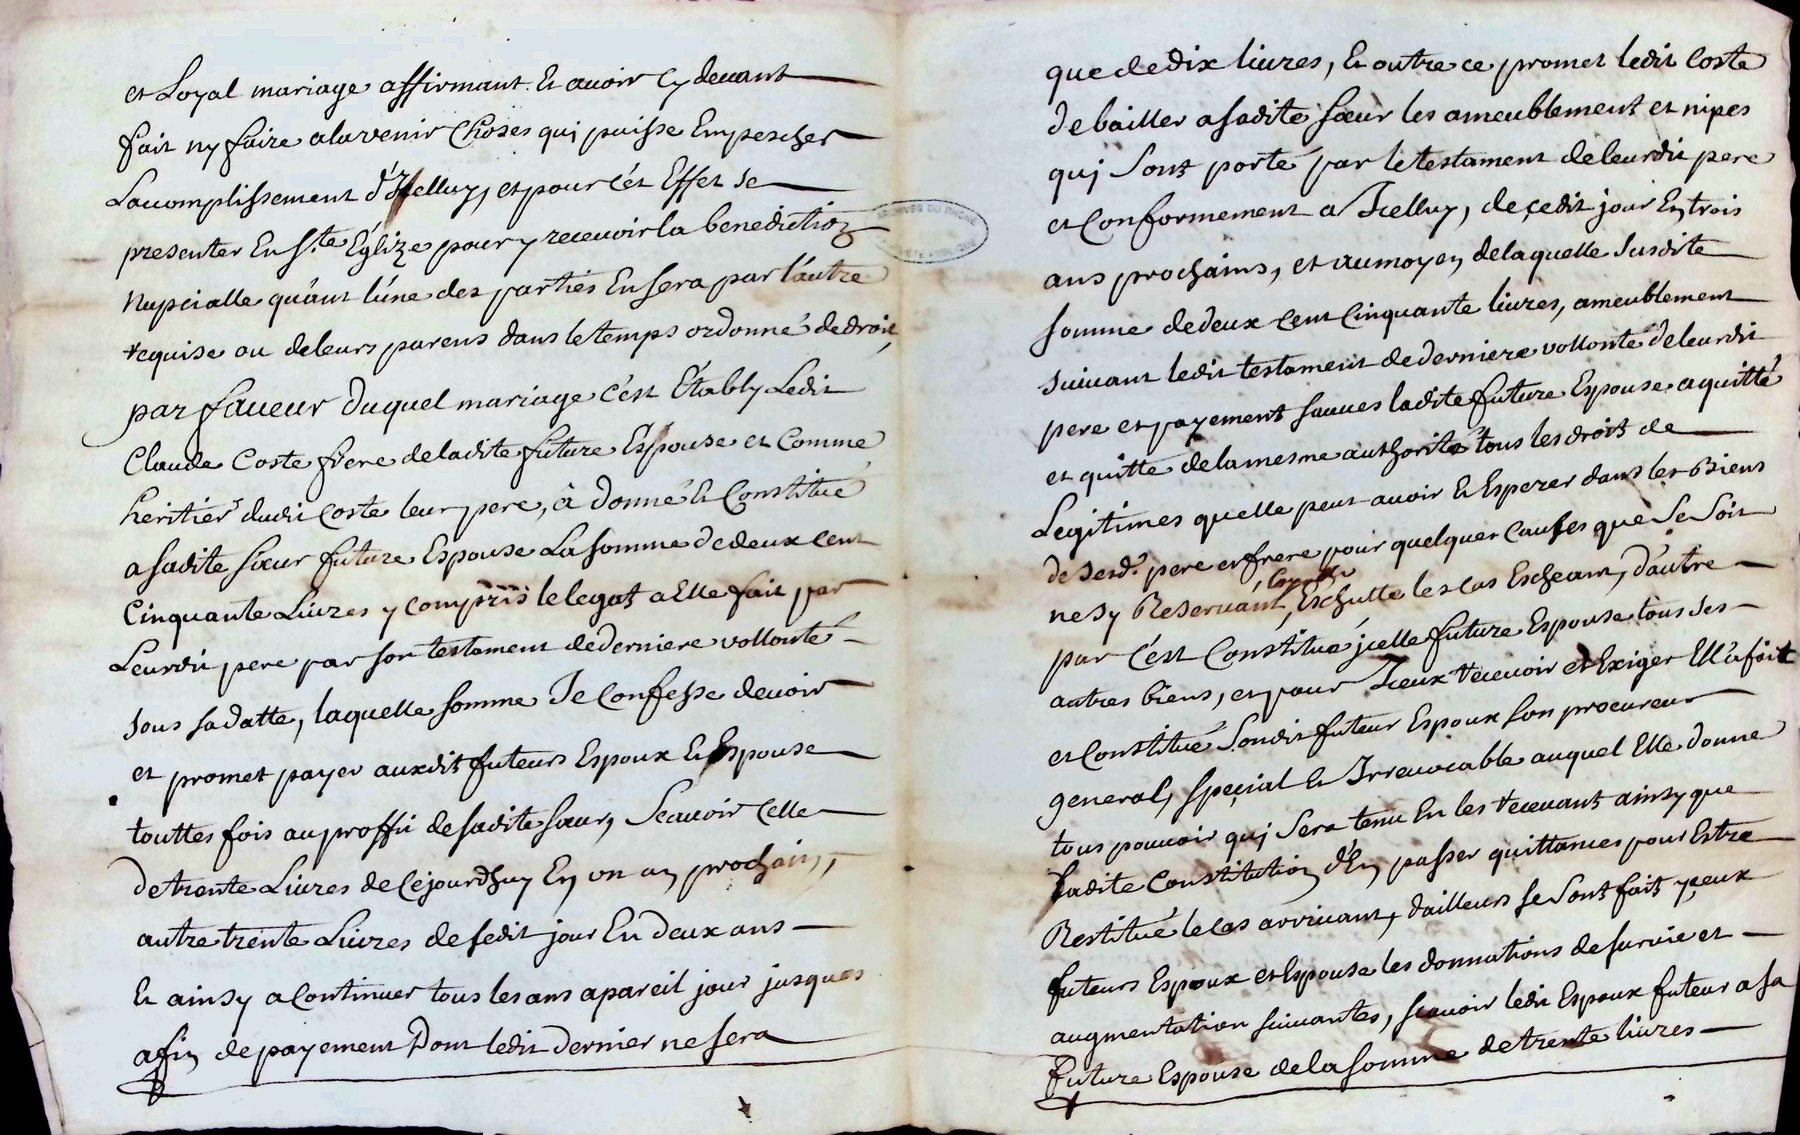 et Loyal mariage affirmant Et avoir Cy devant
fait ny faire alavenir Choses qui puisse Empescher
Lacomplissement d'Icelluy, et pour cét Effet se
presenter En S.te Églize pour y recevoir la benediction
Nupcialle quánt lúne des parties En sera par l'autre
requise ou deleurs parens dans le temps ordonné de droit,
par faveur duquel mariage c'ést Étably Ledit
Claude Coste frere deladite future Espouse et Comme
heritier dudit Coste leur pere, à donné Et Constitué
a sadite sœur future Espouse La somme dedeux cent
Cinquante Livres y compris le legat a Elle fait par
Leurdit pere par son testament dederniere vollonté
sous sadatte, laquelle somme Je Confesse devoir
et promet payer auxdit futeurs Espoux Et Espouse
touttes fois au proffit de sadite sœur, Scavoir Celle
detrente Livres de Cejourdhuy En un an prochain,
autre trente Livres de sedit jour En deux ans
Et ainsy a Continuer tous les ans apareil jour jusques
afin de payement Dont ledit dernier ne sera
ARCHIVES DU RHONE
que de dix livres, Et outre ce promet ledit Coste
de bailler asadite sœur les ameublement et nipes
qui sont porté par le testament deleurdit pere
et Conformement a Icelluy, de çedit jour En trois
ans prochains, et au moyen delaquelle susdite
somme dedeux cent Cinquante livres, ameublement
suivant ledit testament dederniere vollonté deleurdit
pere et payement sauves ladite future Espouse aquitté
et quitte delamesme authorité tous les droit de
Legitimes quelle peut avoir Et Esperer dans les Biens
de sesd. pere et frere pour quelques causes que se soit
ne sy Reservant, Eschutte le cas Escheant, d'autre
par c'ést Constitué jcelle future Espouse tous ses
autres biens, et pour Iceux recevoir et Exiger Ell'a fait
et Constitué Sondit futeur Espoux son procureur
general, speçial Et Irrevocable auquel Elle donne
tous pouvoir quj Sera tenu En les recevant ainsy que
ladite Constitution d'En passer quittances pour Estre
Restitué le Cas arrivant, dailleurs se sont fait yçeux
futeurs Espoux et Espouse les donnations de survie et
augmentation suivantes, scavoir ledit Espoux futeur a sa
future Espouse de la somme de trente livres